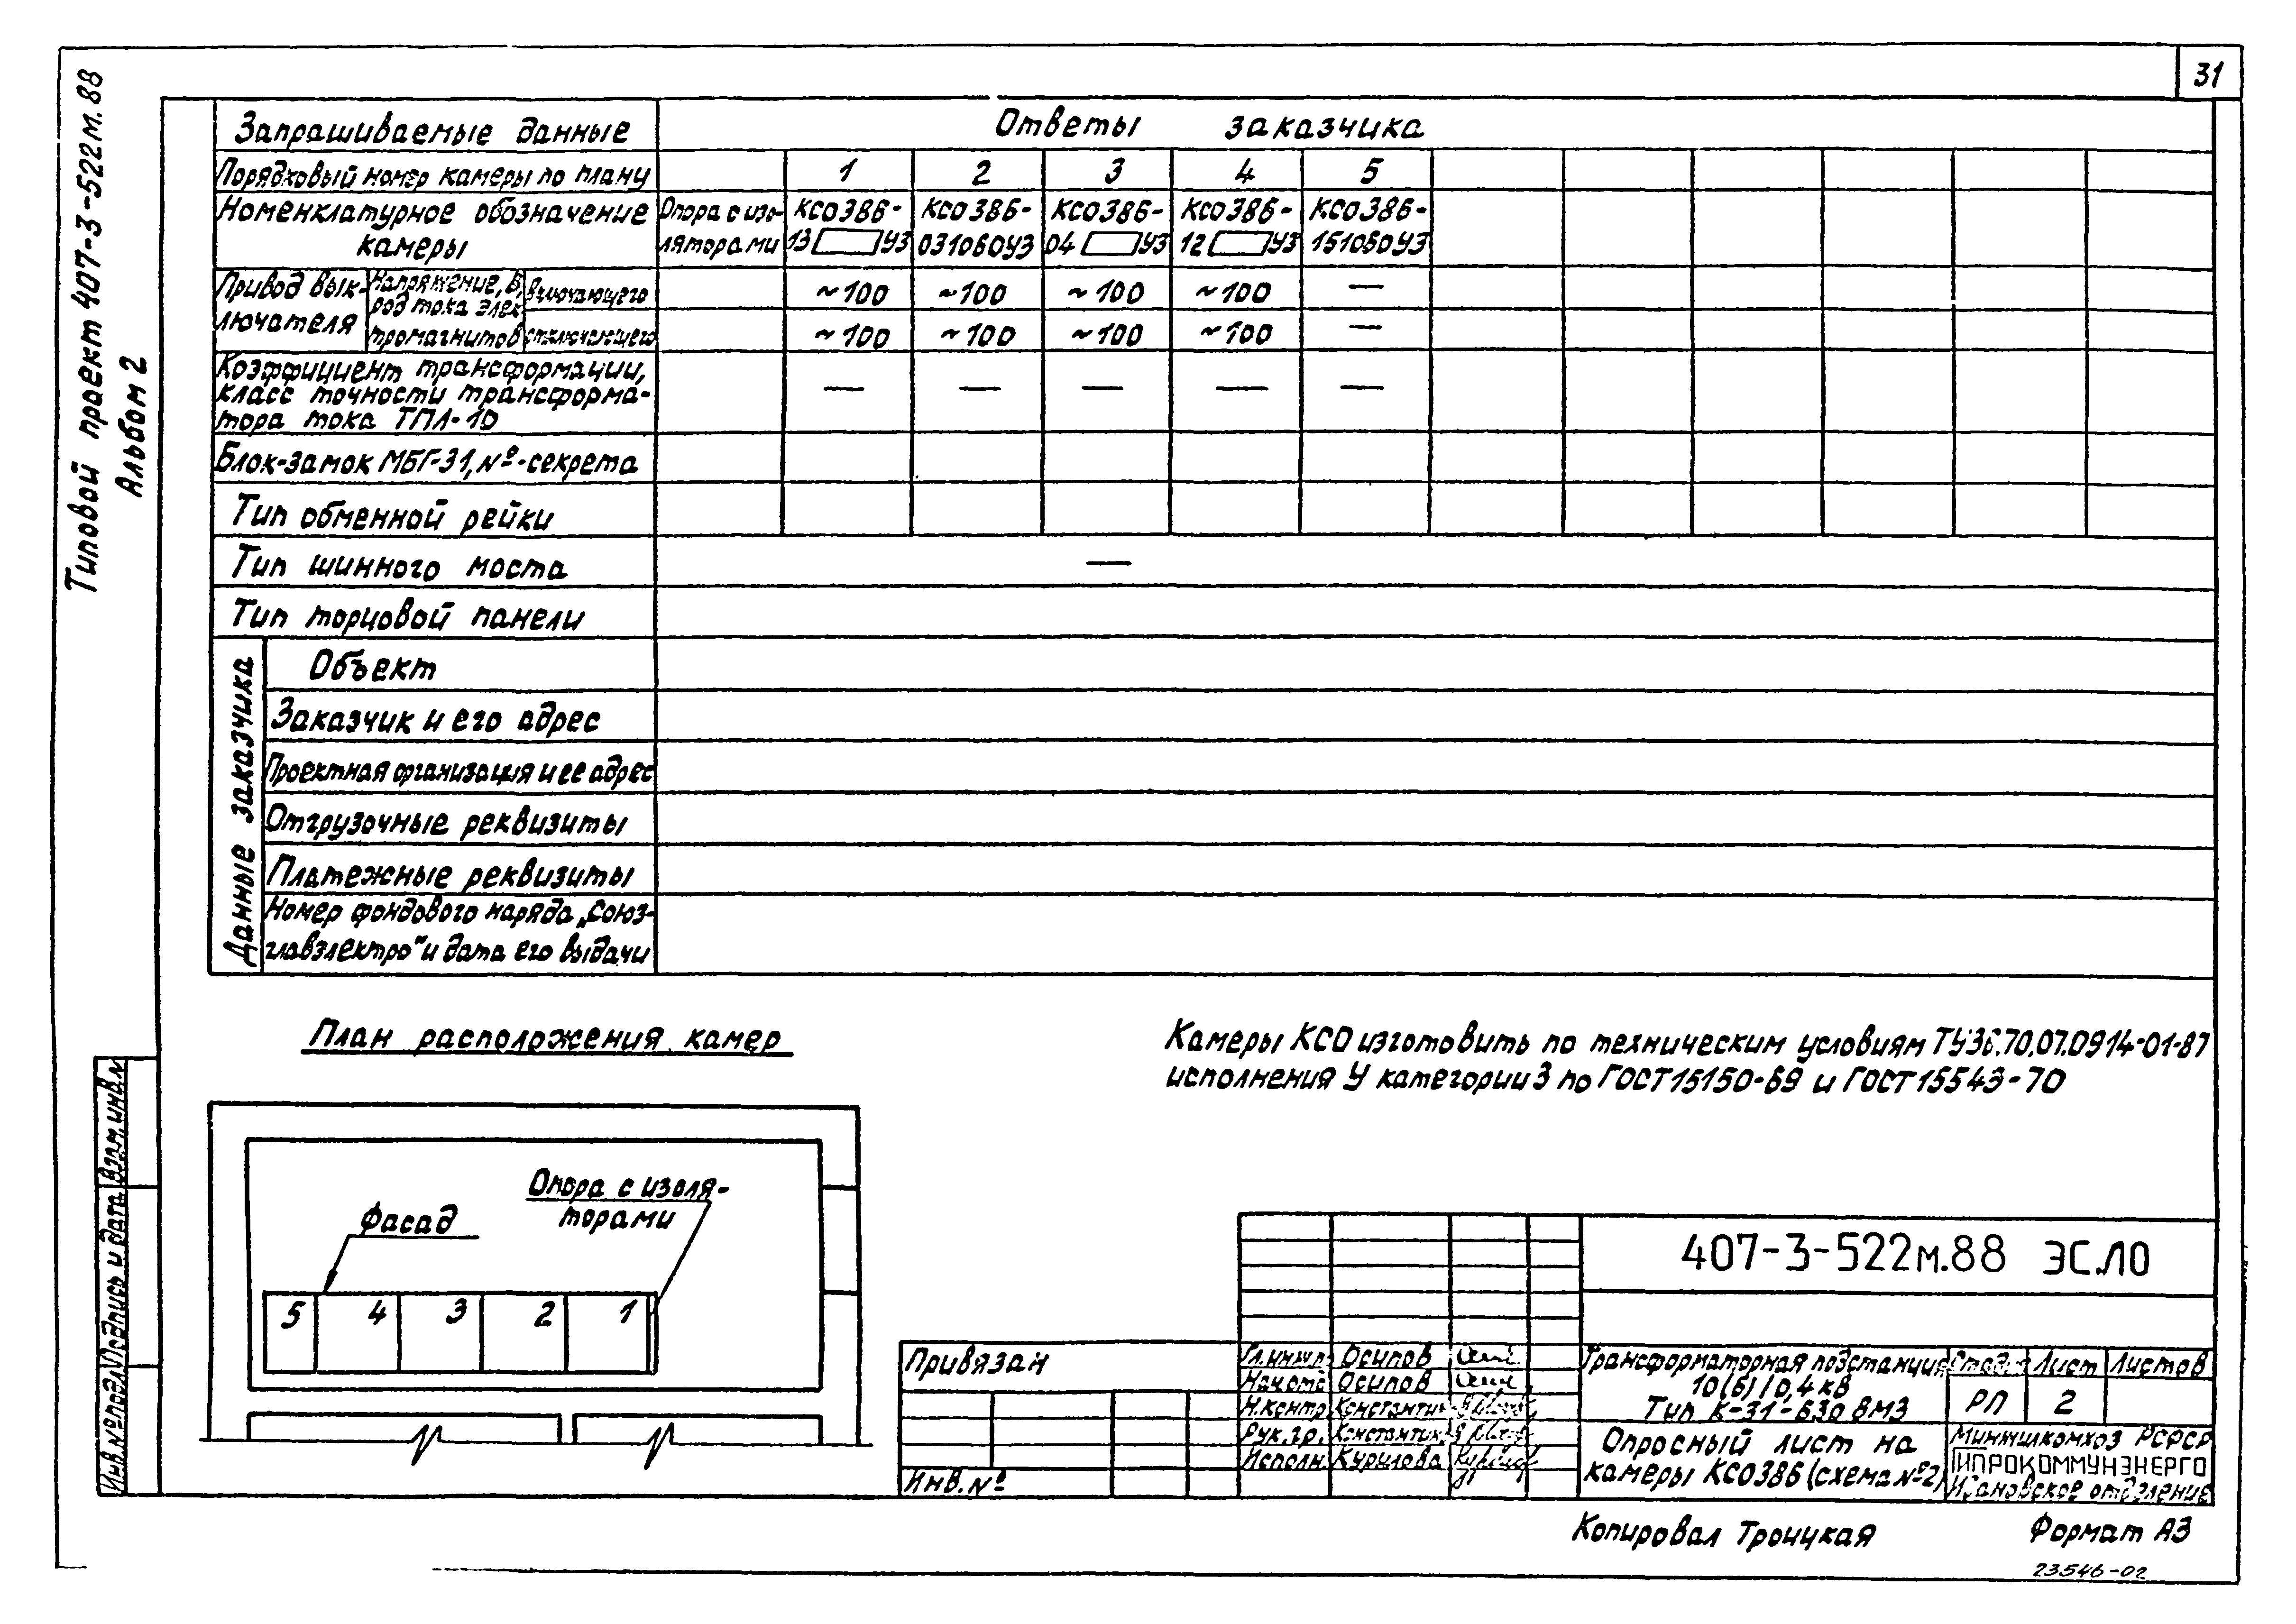 31
Типовой проект 407-3-522м.88
Альбом 2
Запрашиваемые данные
Ответы заказчика
Порядковый номер камеры по плану
1 2 3 4 5
Номенклатурное обозначение
камеры
Опора с изо-
ляторами
КСО386-
13 У3
КСО386-
031060У3
КСО386-
04 У3
КСО386-
12 У3
КСО386-
151060У3
Привод вык-
лючателя
Напряжение, В,
род тока элек
тромагнитов
включающего
~100 ~100 ~100 ~100 —
отключающего
~100 ~100 ~100 ~100 —
Коэффициент трансформации,
класс точности трансформа-
тора тока ТПЛ-10
— — — — —
Блок-замок МБГ-31, №-секрета
Тип обменной рейки
Тип шинного моста
—
Тип торцовой панели
Данные заказчика
Объект
Заказчик и его адрес
Проектная организация и ее адрес
Отгрузочные реквизиты
Платежные реквизиты
Номер фондового наряда „Союз-
главэлектро" и дата его выдачи
План расположения камер
Камеры КСО изготовить по техническим условиям ТУ36.70.07.0914-01-87
исполнения У категории 3 по ГОСТ15150-69 и ГОСТ15543-70
Опора с изоля-
торами
Фасад
5 4 3 2 1
Инв.№подл. Подпись и дата Взам.инв.№
407-3-522м.88 ЭС.ЛО
Привязан
Инв.№
Гл.инж.п. Осипов
Нач.отд Осипов
Н.контр. Константин
Рук.гр. Константин
Исполн. Курилова
Трансформаторная подстанция
10(6)/0,4кВ
Тип К-31-630 ВМ3
Стадия Лист Листов
РП 2
Опросный лист на
камеры КСО386 (схема №2)
Минжилкомхоз РСФСР
ГИПРОКОММУНЭНЕРГО
Ивановское отделение
Копировал Троицкая
Формат А3
23546-02